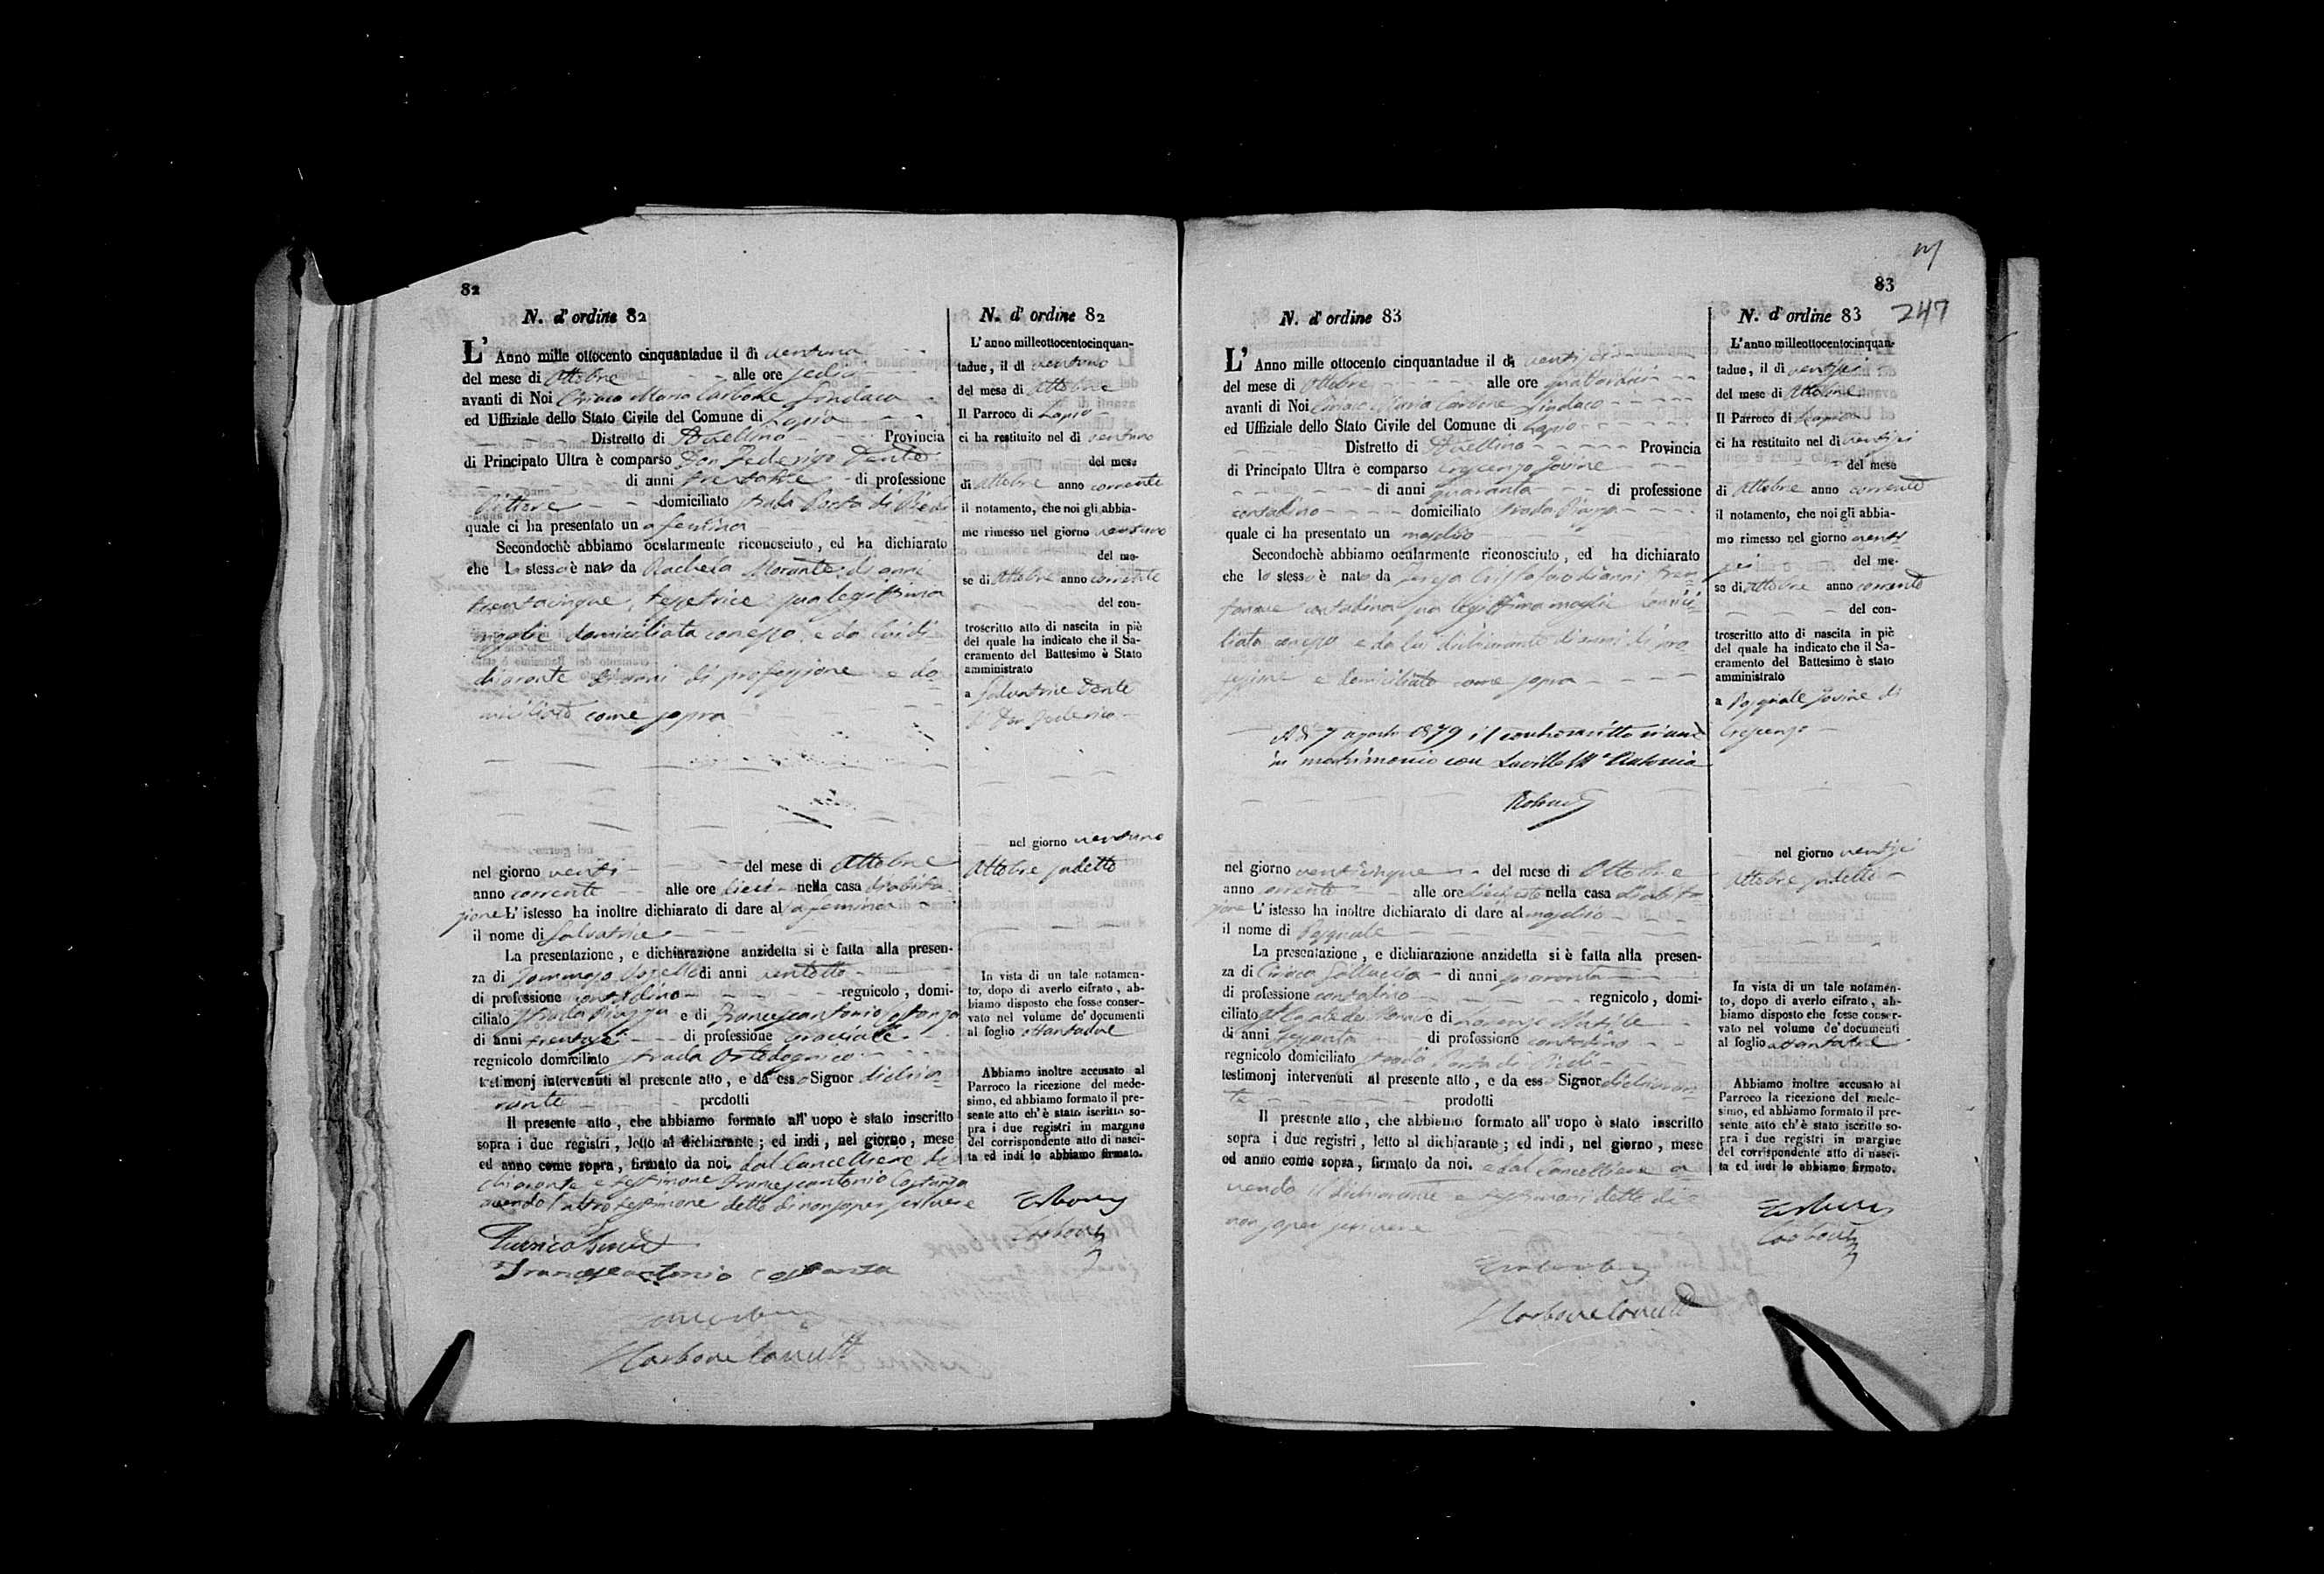 82
N. d' ordine 82
L' Anno mille ottocento cinquantadue il dì ventuno
del mese di Ottobre alle ore sedici
avanti di Noi Ciriaco Maria Carbone Sindaco
ed Uffiziale dello Stato Civile del Comune di Lapio
Distretto di Avellino Provincia
di Principato Ultra è comparso Don Federigo Dente
di anni di professione
Pittore domiciliato strada Porta di Piedi
quale ci ha presentato un a femina
Secondochè abbiamo ocularmente riconosciuto, ed ha dichiarato
che la stessa è nata da Rachela Morante di anni
trentacinque, tessetrice sua legittima
moglie domiciliata con esso e da lui di-
chiarante di anni di professione e do-
miciliato come sopra
nel giorno venti del mese di Ottobre
anno corrente alle ore dieci nella casa di abita-
zione L' istesso ha inoltre dichiarato di dare alla femina
il nome di Salvatrice
La presentazione, e dichiarazione anzidetta si è fatta alla presen-
za di Tommaso di anni ventotto
di professione contadino regnicolo, domi-
ciliato strada Piazza e di Francescantonio Costanza
di anni trentasei di professione bracciale
regnicolo domiciliato strada
testimonj intervenuti al presente atto, e da esso Signor dichia-
rante prodotti
Il presente atto, che abbiamo formato all' uopo è stato inscritto
sopra i due registri, letto al dichiarante; ed indi, nel giorno, mese
ed anno come sopra, firmato da noi. dal Cancelliere di-
chiarante e testimone Francescantonio Costanza
avendo l'altro testimone detto di non saper scrivere
Francescantonio Costanza
Carbone
N. d' ordine 82
L' anno milleottocentocinquan-
tadue, il dì ventuno
del mese di Ottobre
Il Parroco di Lapio
ci ha restituito nel dì ventuno
del mese
di Ottobre anno corrente
il notamento, che noi gli abbia-
mo rimesso nel giorno ventuno
del me-
se di Ottobre anno corrente
del con-
troscritto atto di nascita in piè
del quale ha indicato che il Sa-
cramento del Battesimo è Stato
amministrato
a Salvatrice Dente
di Don Federico
nel giorno ventuno
Ottobre sudetto
In vista di un tale notamen-
to, dopo di averlo cifrato, ab-
biamo disposto che fosse conser-
vato nel volume de' documenti
al foglio ottantadue
Abbiamo inoltre accusato al
Parroco la ricezione del mede-
simo, ed abbiamo formato il pre-
sente atto ch' è stato iscritto so-
pra i due registri in margine
del corrispondente atto di nasci-
ta ed indi lo abbiamo firmato.
Carbone
83
247
N. d' ordine 83
L' Anno mille ottocento cinquantadue il dì ventisei
del mese di Ottobre alle ore quattordici
avanti di Noi Ciriaco Maria Carbone Sindaco
ed Uffiziale dello Stato Civile del Comune di Lapio
Distretto di Avellino Provincia
di Principato Ultra è comparso Crescenzo Jovine
di anni quaranta di professione
contadino domiciliato strada Piazza
quale ci ha presentato un maschio
Secondochè abbiamo ocularmente riconosciuto, ed ha dichiarato
che lo stesso è nato da Teresa Cristofaro di anni tren-
tanove contadina sua legittima moglie domici-
liata con esso e da lui dichiarante di anni di pro-
fessione e domiciliato come sopra
A dì 7 agosto 1879 il controscritto si unì
in matrimonio con M.ª Antonia
nel giorno venticinque del mese di Ottobre
anno corrente alle ore diecisette nella casa di abita-
zione L' istesso ha inoltre dichiarato di dare al maschio
il nome di Pasquale
La presentazione, e dichiarazione anzidetta si è fatta alla presen-
za di Ciriaco Galluccio di anni quaranta
di professione contadino regnicolo, domi-
ciliato e di Lorenzo
di anni sessanta di professione contadino
regnicolo domiciliato strada Porta di Piedi
testimonj intervenuti al presente atto, e da esso Signor dichiaran-
te prodotti
Il presente atto, che abbiamo formato all' uopo è stato inscritto
sopra i due registri, letto al dichiarante; ed indi, nel giorno, mese
ed anno come sopra, firmato da noi. e dal Cancelliere a-
vendo il dichiarante e testimoni detto di
non saper scrivere
Carbone
N. d' ordine 83
L' anno milleottocentocinquan-
tadue, il dì ventisei
del mese di Ottobre
Il Parroco di Lapio
ci ha restituito nel dì ventisei
del mese
di Ottobre anno corrente
il notamento, che noi gli abbia-
mo rimesso nel giorno venti
sei del me-
se di Ottobre anno corrente
del con-
troscritto atto di nascita in piè
del quale ha indicato che il Sa-
cramento del Battesimo è stato
amministrato
a Pasquale Jovine di
Crescenzo
nel giorno ventisei
Ottobre sudetto
In vista di un tale notamen-
to, dopo di averlo cifrato, ab-
biamo disposto che fosse conser-
vato nel volume de' documenti
al foglio ottantatre
Abbiamo inoltre accusato al
Parroco la ricezione del mede-
simo, ed abbiamo formato il pre-
sente atto ch' è stato iscritto so-
pra i due registri in margine
del corrispondente atto di nasci-
ta ed indi lo abbiamo firmato.
Carbone